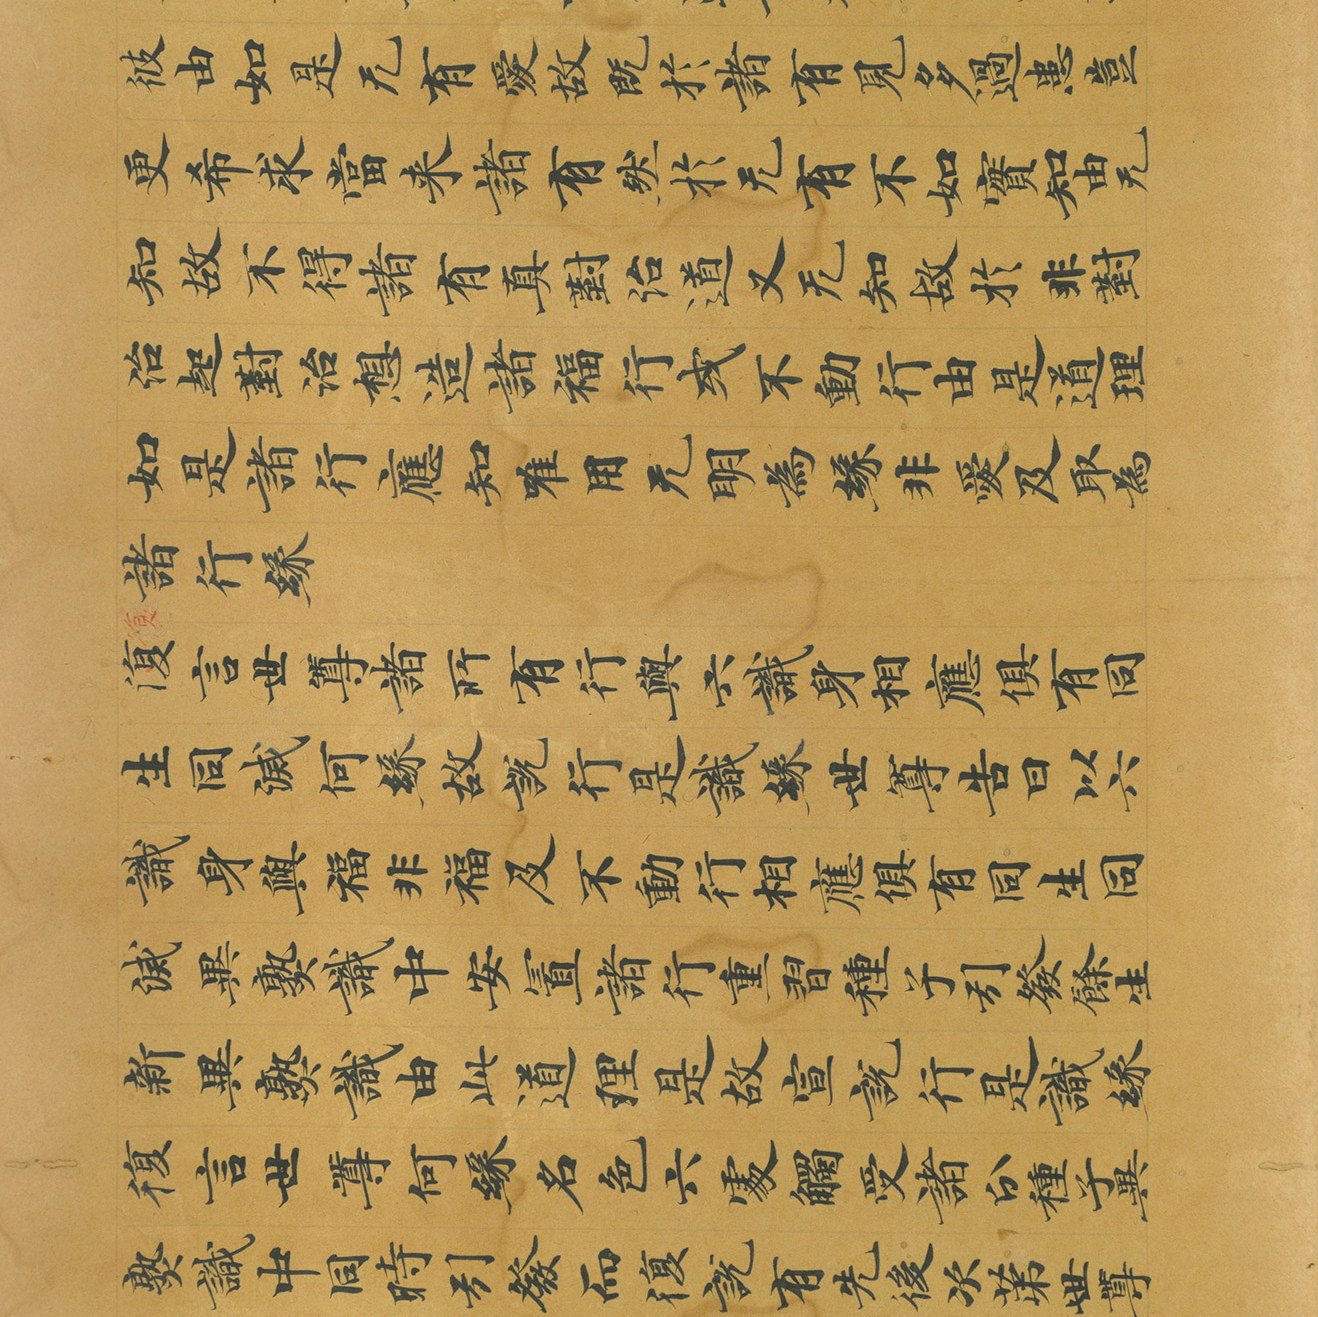 彼由如是无有愛故既於諸有見多過患豈
更希求當来諸有然於无有不如實知由无
知故不得諸有真對治道又无知故於非對
治起對治想造諸福行或不動行由是道理
如是諸行應知唯用无明為緣非愛及取為
諸行緣
復言世尊諸所有行與六識身相應俱有同
生同滅何緣故説行是識緣世尊告曰以六
識身與福非福及不動行相應俱有同生同
滅異熟識中安置諸行重習種子引發餘生
新異熟識由此道理是故宣説行是識緣
復言世尊何緣名色六處觸受諸分種子異
熟識中同時引發而復説有先後次第世尊